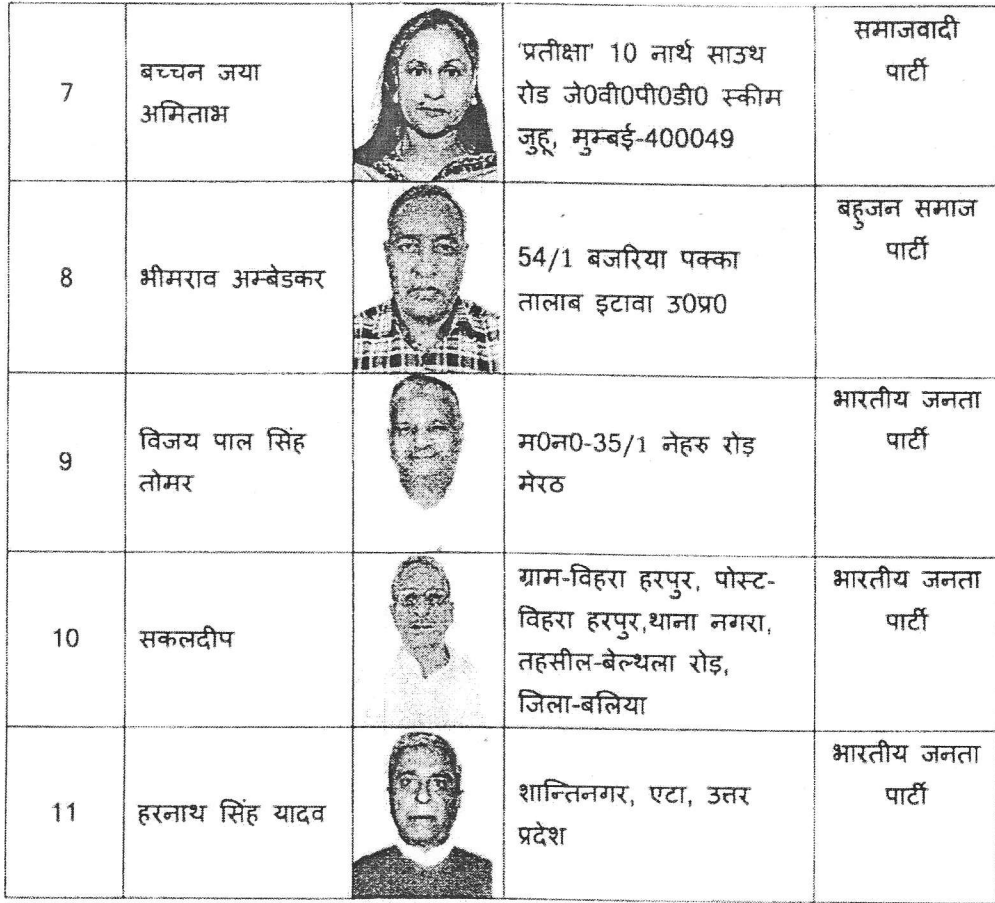 7
बच्चन जया
अमिताभ
'प्रतीक्षा' 10 नार्थ साउथ
रोड जे0वी0पी0डी0 स्कीम
जुहू, मुम्बई-400049
समाजवादी
पार्टी
8
भीमराव अम्बेडकर
54/1 बजरिया पक्का
तालाब इटावा उ0प्र0
बहुजन समाज
पार्टी
9
विजय पाल सिंह
तोमर
म0न0-35/1 नेहरु रोड़
मेरठ
भारतीय जनता
पार्टी
10
सकलदीप
ग्राम-विहरा हरपुर, पोस्ट-
विहरा हरपुर,थाना नगरा,
तहसील-बेल्थला रोड़,
जिला-बलिया
भारतीय जनता
पार्टी
11
हरनाथ सिंह यादव
शान्तिनगर, एटा, उत्तर
प्रदेश
भारतीय जनता
पार्टी